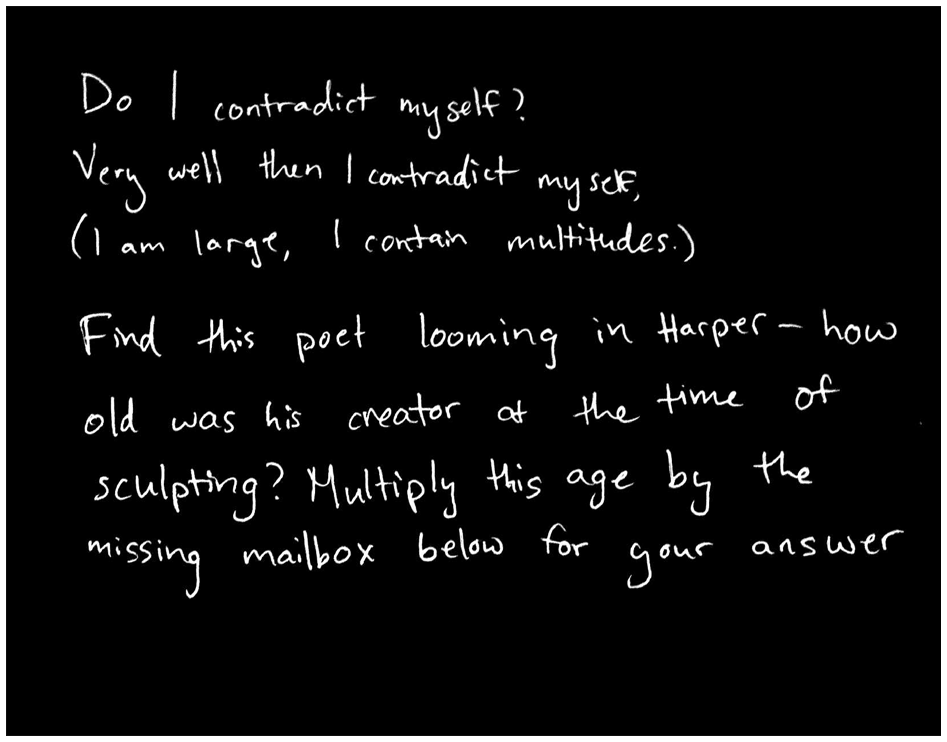 Do I contradict myself?
Very well then I contradict myself,
(I am large, I contain multitudes.)
Find this poet looming in Harper - how
old was his creator at the time of
sculpting? Multiply this age by the
missing mailbox below for your answer